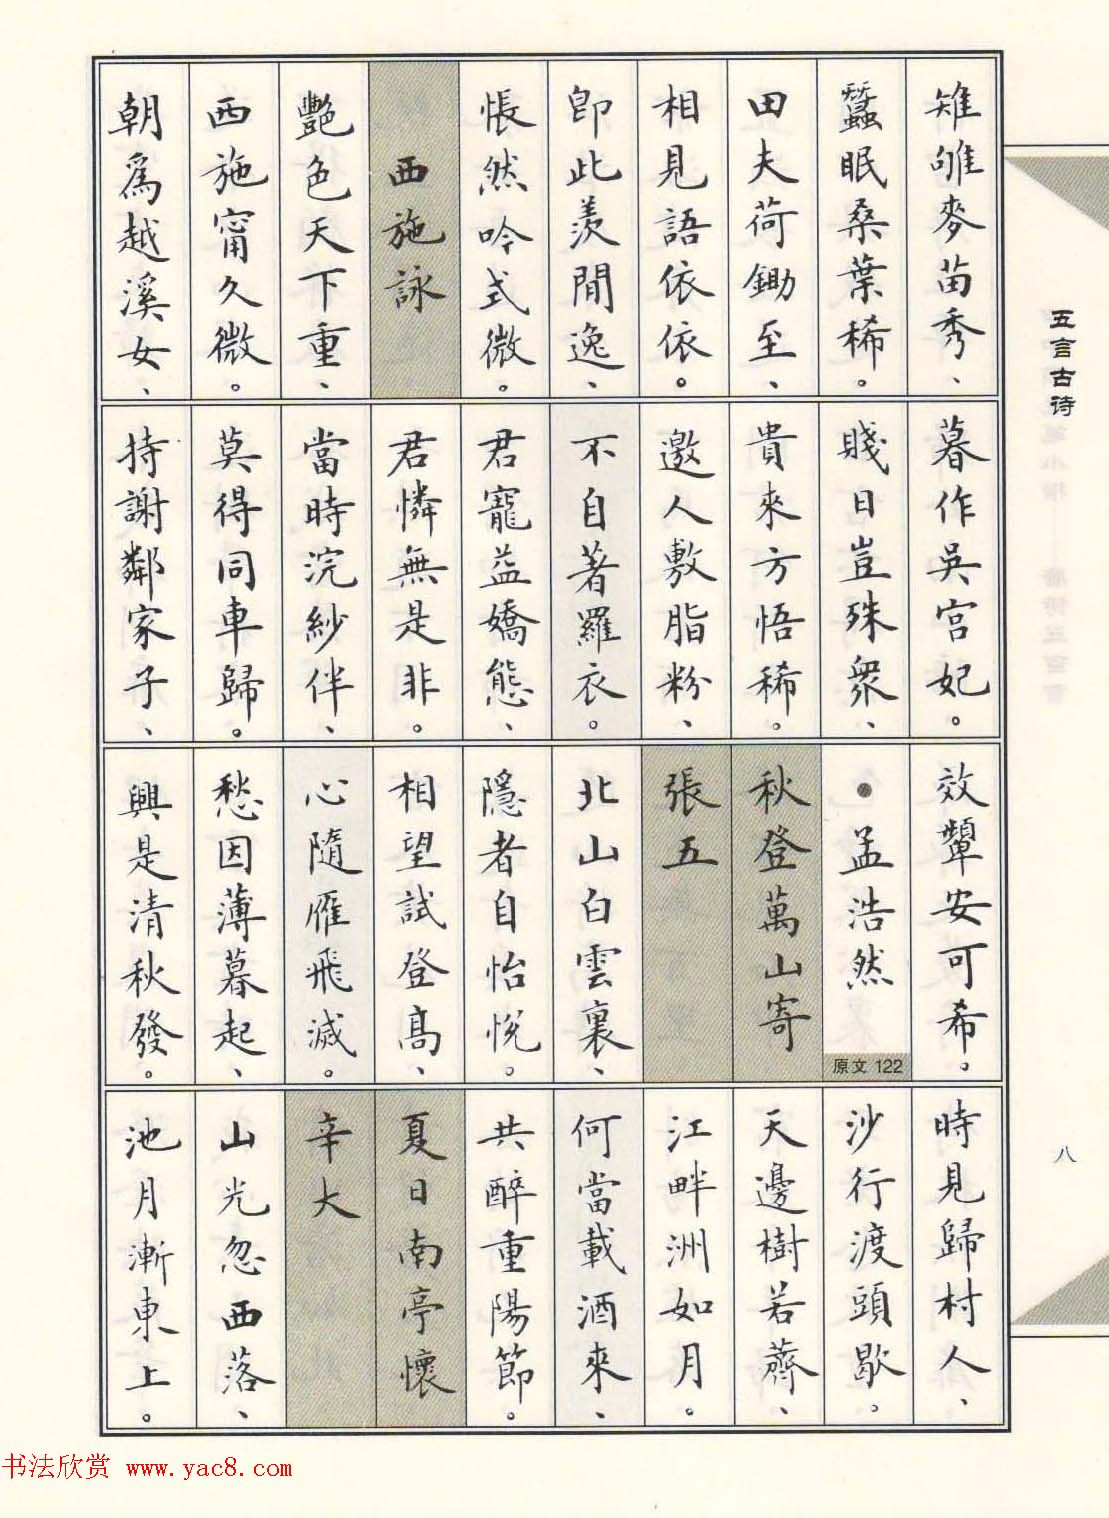 雉雊麥苗秀、
蠶眠桑葉稀。
田夫荷鋤至、
相見語依依。
即此羨閒逸、
悵然吟式微。
西施詠
艷色天下重、
西施甯久微。
朝爲越溪女、
暮作吳宮妃。
賤日豈殊衆、
貴來方悟稀。
邀人敷脂粉、
不自著羅衣。
君寵益嬌態、
君憐無是非。
當時浣紗伴、
莫得同車歸。
持謝鄰家子、
效顰安可希。
●孟浩然
原文 122
秋登萬山寄
張五
北山白雲裏、
隱者自怡悅。
相望試登高、
心隨雁飛滅。
愁因薄暮起、
興是清秋發。
時見歸村人、
沙行渡頭歇。
天邊樹若薺、
江畔洲如月。
何當載酒來、
共醉重陽節。
夏日南亭懷
辛大
山光忽西落、
池月漸東上。
五言古诗
八
书法欣赏 www.yac8.com